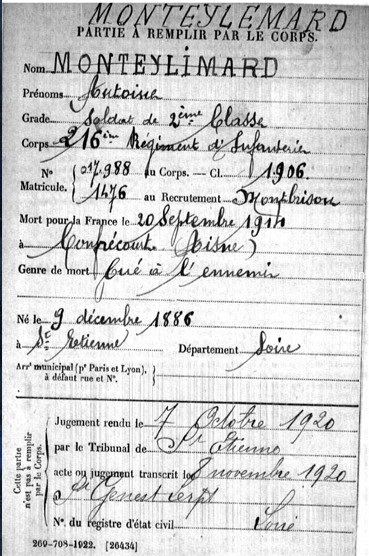 MONTEYLEMARD
PARTIE À REMPLIR PAR LE CORPS.
Nom MONTEYLIMARD
Prénoms Antoine
Grade Soldat de 2ème Classe
Corps 216ème Régiment d'Infanterie
N° 017.988 au Corps. — Cl. 1906.
Matricule. 1476 au Recrutement Montbrison
Mort pour la France le 20 Septembre 1914
à (Aisne)
Genre de mort Tué à l'ennemi
Né le 9 décembre 1886
à St Etienne Département Loire
Arrt municipal (pr Paris et Lyon),
à défaut rue et N°.
Cette partie
n'est pas à remplir
par le Corps.
Jugement rendu le 7 Octobre 1920
par le Tribunal de St Etienne
acte ou jugement transcrit le 8 novembre 1920
St Genest Lerpt
N°. du registre d'état civil Loire
269-708-1922. [26434]